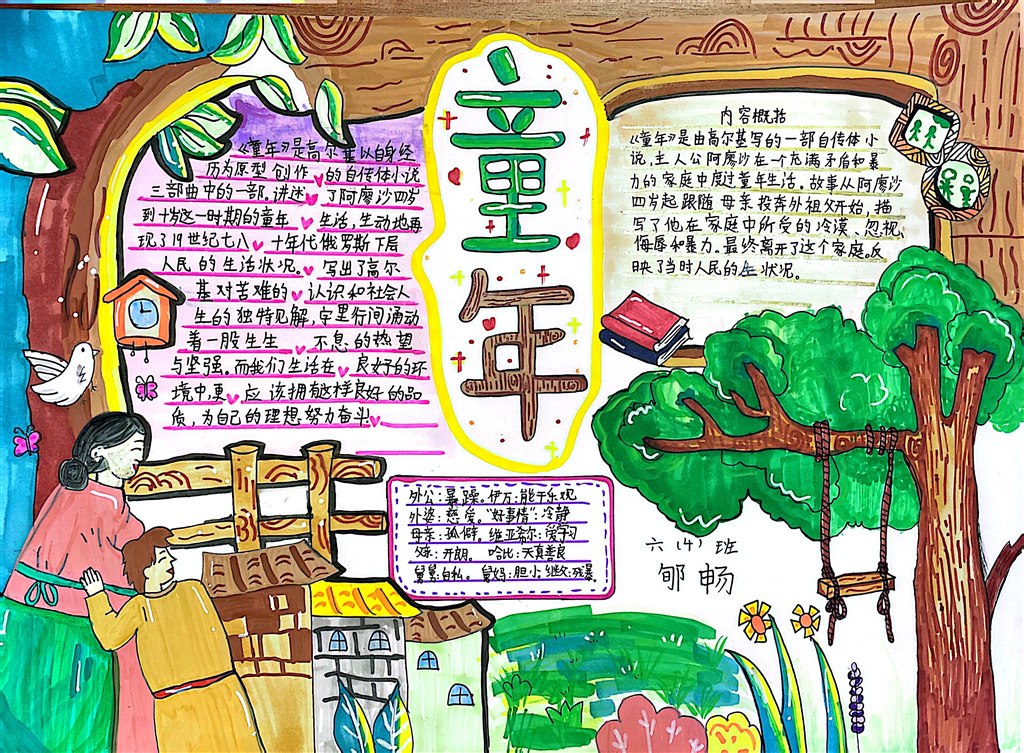 童年
《童年》是高尔基以自身经
历为原型创作的自传体小说
三部曲中的一部.讲述了阿廖沙四岁
到十岁这一时期的童年生活,生动地再
现了19世纪七八十年代俄罗斯下层
人民的生活状况。写出了高尔
基对苦难的认识和社会人
生的独特见解,字里行间涌动
着一股生生不息的热望
与坚强。而我们生活在良好的环
境中,更应该拥有这样良好的品
质,为自己的理想努力奋斗
内容概括
《童年》是由高尔基写的一部自传体小
说,主人公阿廖沙在一个充满矛盾和暴
力的家庭中度过童年生活。故事从阿廖沙
四岁起跟随母亲投奔外祖父开始,描
写了他在家庭中所受的冷漠、忽视、
侮辱和暴力。最终离开了这个家庭。反
映了当时人民的生状况。
外公:暴躁。伊万:能干乐观
外婆:慈爱。"好事情":冷静
母亲:孤僻。维亚希尔:爱学习
父亲:开朗。哈比:天真善良
舅舅:自私。舅妈:胆小。继父:残暴
六(4)班
郇畅